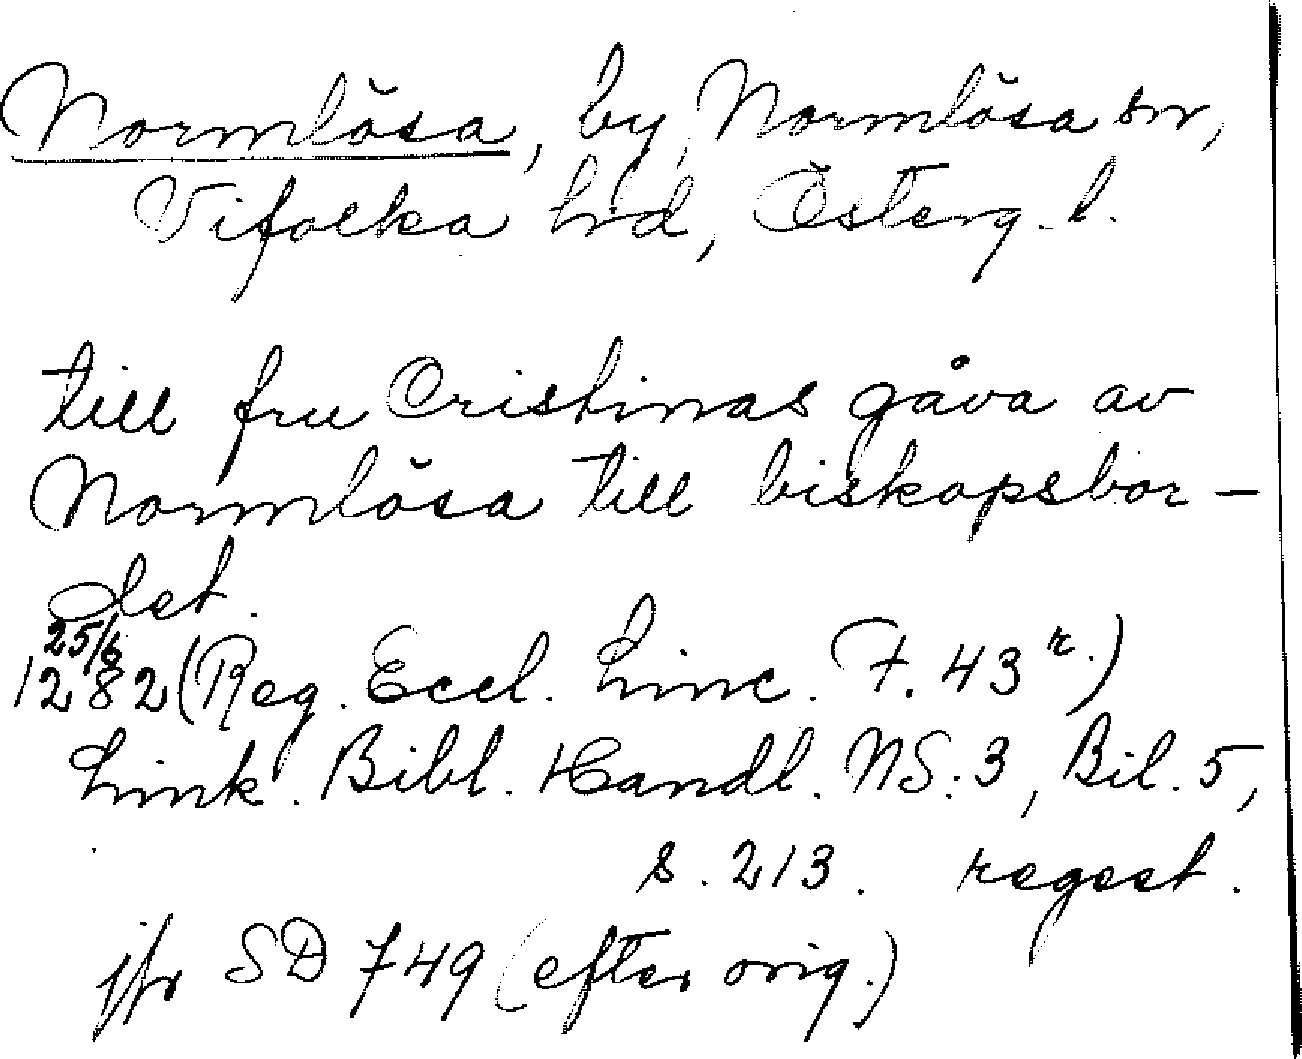 Normlösa, by, Normlösa sn,
Vifolka hd, Österg. l.
till fru Cristinas gåva av
Normlösa till biskopsbor-
det.
25/6
1282 (Reg. Eccl. Linc. F. 43 r.)
Link. Bibl. Handl. NS: 3, Bil. 5,
s. 213. regest.
jfr SD 749 (efter orig.)